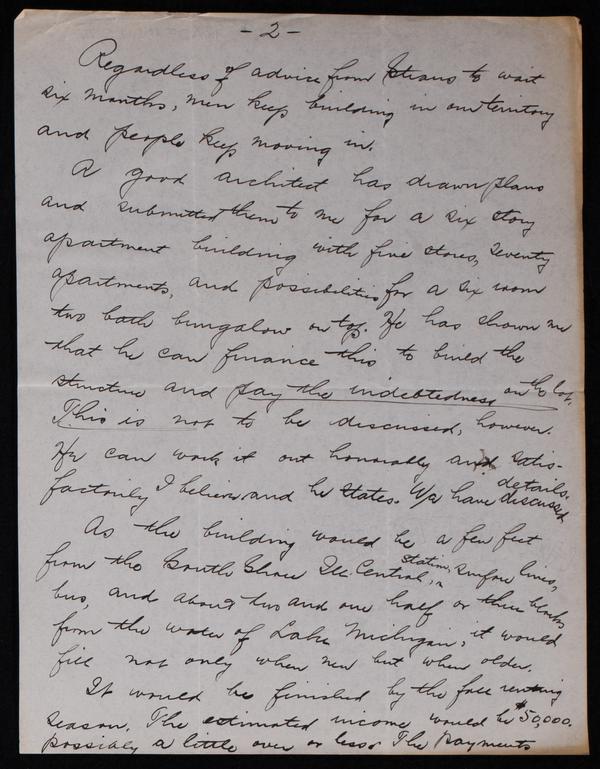 - 2 -
Regardless of advice from Straus to wait
six months, men keep building in our territory
and people keep moving in.
A good architect has drawn plans
and submitted them to me for a six story
apartment building with five stores, seventy
apartments, and possibilities for a six room
two bath bungalow on top. He has shown me
that he can finance this to build the
structure and pay the indebtedness on the lot.
This is not to be discussed, however.
He can work it out honorably and satis-
factorily I believe and he states. We have discussed details.
As the building would be a few feet
from the South Shore Ill. Central station, surface lines,
bus, and about two and one half or three blocks
from the water of Lake Michigan, it would
fill not only when new but when older.
It would be finished by the fall renting
season. The estimated income would be $50,000.
possibly a little over or less. The payments